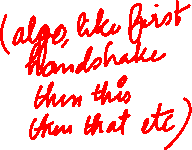 (algo, like first
handshake
then this
then that etc)